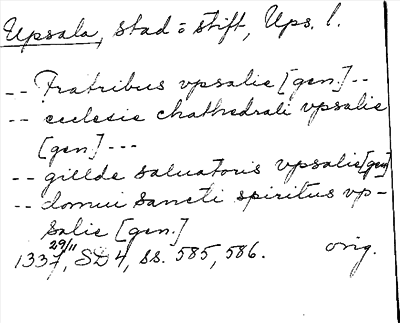 Upsala, stad o stift, Ups. l.
-- Fratribus vpsalie [gen] --
-- ecclesie chathedrali vpsalie
[gen] ---
-- gillde saluatoris vpsalie [gen]
-- domui sancti spiritus vp-
salie [gen.]
1337 29/11, SD 4, ss. 585, 586. orig.